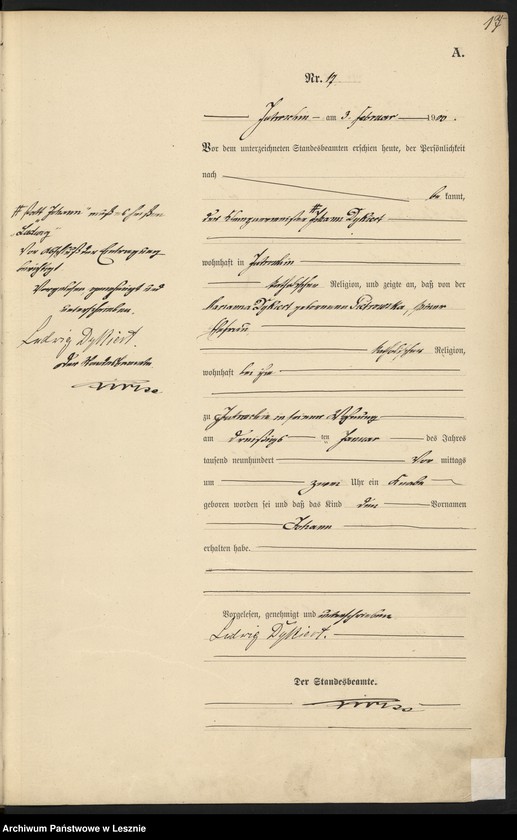 17
A.
Nr. 17
Jutroschin am 3. Februar 1900.
Vor dem unterzeichneten Standesbeamten erschien heute, der Persönlichkeit
nach
be kannt,
der Johann Dykiert
wohnhaft in Jutroschin
katholischer Religion, und zeigte an, daß von der
Marianna Dykiert geborenen Piotrowska, seiner
Ehefrau
katholischer Religion,
wohnhaft bei ihm
zu Jutroschin in seiner Wohnung
am dreißigsten Januar des Jahres
tausend neunhundert Vor mittags
um zwei Uhr ein Knabe
geboren worden sei und daß das Kind den Vornamen
Johann
erhalten habe.
Vorgelesen, genehmigt und unterschrieben
Ludwig Dykiert.
Der Standesbeamte.
statt "Johann" muß es heißen
"Ludwig"
Vor Abschluß der Eintragung
berichtigt
Vorgelesen genehmigt und
unterschrieben.
Ludwig Dykiert.
Der Standesbeamte
Archiwum Państwowe w Lesznie